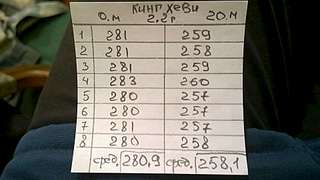 КИНГ ХЕВИ
0.М 2,2г. 20.М
1 281 259
2 281 258
3 281 259
4 283 260
5 280 257
6 280 257
7 281 257
8 280 258
сред. 280,9 сред. 258,1